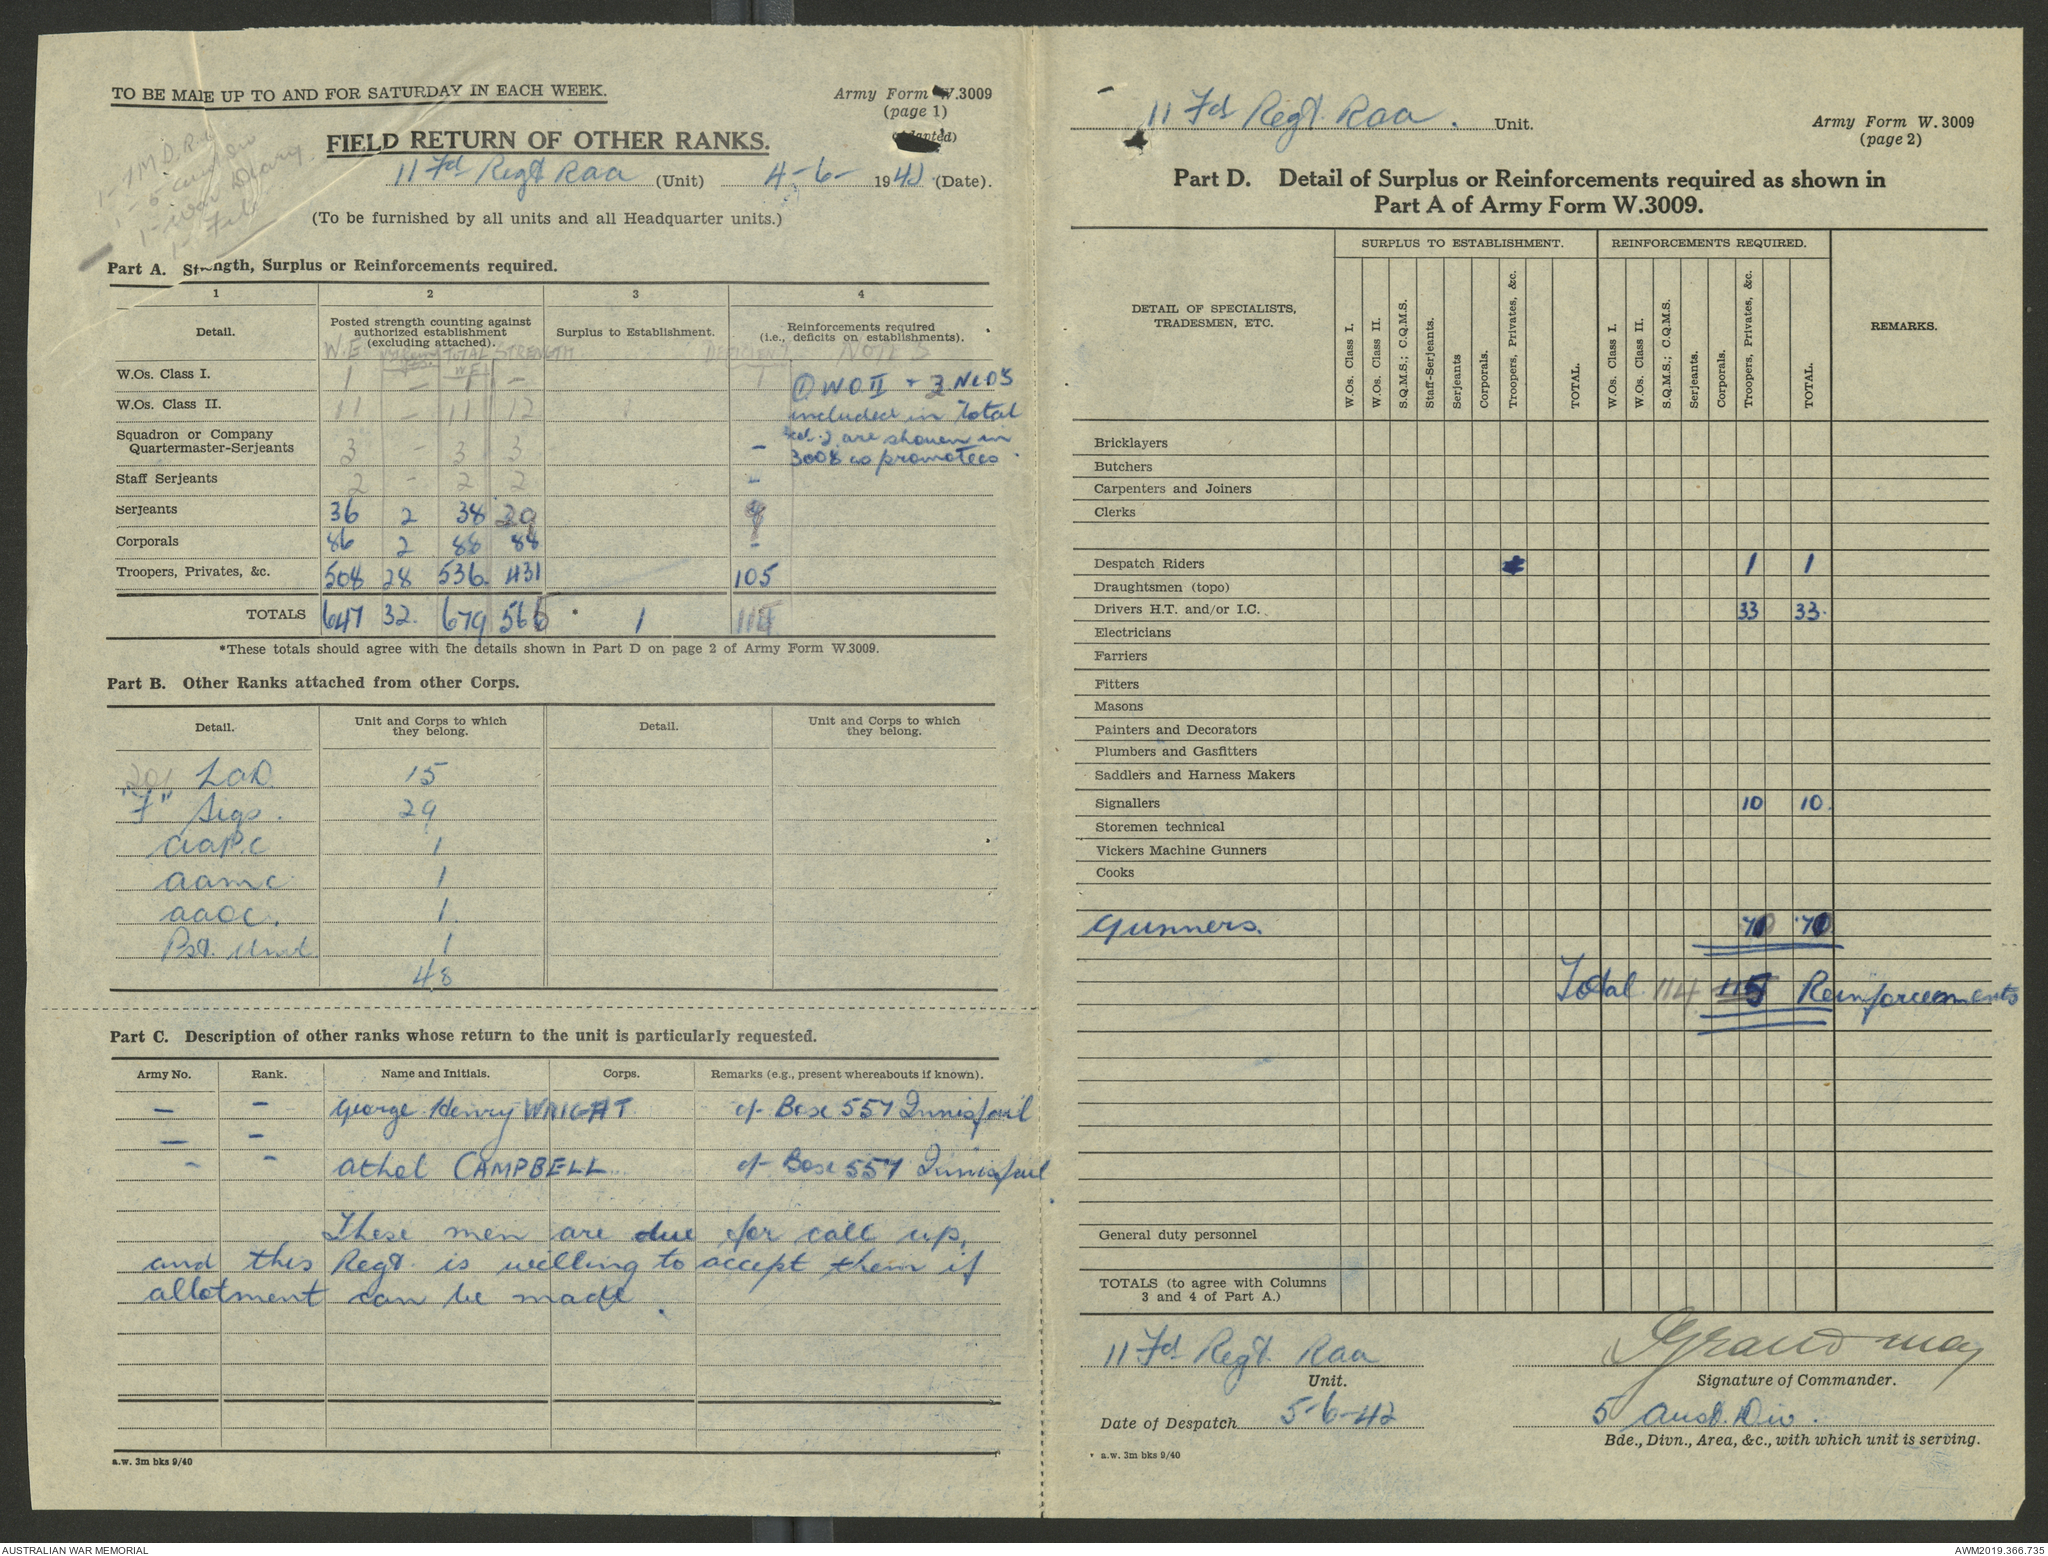 TO BE MADE UP TO AND FOR SATURDAY IN EACH WEEK.
Army Form W.3009
(page 1)
(Adapted)
FIELD RETURN OF OTHER RANKS.
11 Fd Regt Raa (Unit) 4-6- 1942 (Date).
(To be furnished by all units and all Headquarter units.)
1 - War Diary
1 - File
Part A. Strength, Surplus or Reinforcements required.
1 2 3 4
Detail. Posted strength counting against authorized establishment (excluding attached). Surplus to Establishment. Reinforcements required (i.e., deficits on establishments).
W.E. TOTAL W.E. STRENGTH DEFICIENT NOTES
W.Os. Class I. 1 - 1 - 1
W.Os. Class II. 11 - 11 12
Squadron or Company Quartermaster-Serjeants 3 - 3 3 -
Staff Serjeants 2 - 2 2 -
Serjeants 36 2 38 9
Corporals 86 2 88 88 -
Troopers, Privates, &c. 508 28 536 431 105
① WO II + 3 NCO's
included in Total
Col. 2 are shown in
3008 as promotees.
TOTALS 647 32 679 565 * 1 114
*These totals should agree with the details shown in Part D on page 2 of Army Form W.3009.
Part B. Other Ranks attached from other Corps.
Detail. Unit and Corps to which they belong. Detail. Unit and Corps to which they belong.
201 LAD 15
"F" Sigs. 29
AAPC 1
aamc 1
aaoc. 1
Pst. Unit 1
48
Part C. Description of other ranks whose return to the unit is particularly requested.
Army No. Rank. Name and Initials. Corps. Remarks (e.g., present whereabouts if known).
- - George Henry WRIGHT c/- Box 557 Innisfail
- -
- - Athel CAMPBELL c/- Box 557 Innisfail.
These men are due for call up,
and this Regt. is willing to accept them if
allotment can be made.
a.w. 3m bks 9/40
11 Fd Regt. Raa. Unit.
Army Form W.3009
(page 2)
Part D. Detail of Surplus or Reinforcements required as shown in
Part A of Army Form W.3009.
SURPLUS TO ESTABLISHMENT. REINFORCEMENTS REQUIRED.
DETAIL OF SPECIALISTS, TRADESMEN, ETC.
W.Os. Class I. W.Os. Class II. S.Q.M.S.; C.Q.M.S. Staff-Serjeants. Serjeants Corporals. Troopers, Privates, &c. TOTAL.
W.Os. Class I. W.Os. Class II. S.Q.M.S.; C.Q.M.S. Serjeants. Corporals. Troopers, Privates, &c. TOTAL.
REMARKS.
Bricklayers
Butchers
Carpenters and Joiners
Clerks
Despatch Riders 1 1
Draughtsmen (topo)
Drivers H.T. and/or I.C. 33 33.
Electricians
Farriers
Fitters
Masons
Painters and Decorators
Plumbers and Gasfitters
Saddlers and Harness Makers
Signallers 10 10.
Storemen technical
Vickers Machine Gunners
Cooks
Gunners. 70 70
Total 114 115 Reinforcements
General duty personnel
TOTALS (to agree with Columns
3 and 4 of Part A.)
11 Fd Regt. Raa
Unit.
Signature of Commander.
Date of Despatch 5-6-42
5 Aust. Div.
Bde., Divn., Area, &c., with which unit is serving.
a.w. 3m bks 9/40
AUSTRALIAN WAR MEMORIAL
AWM2019.366.735